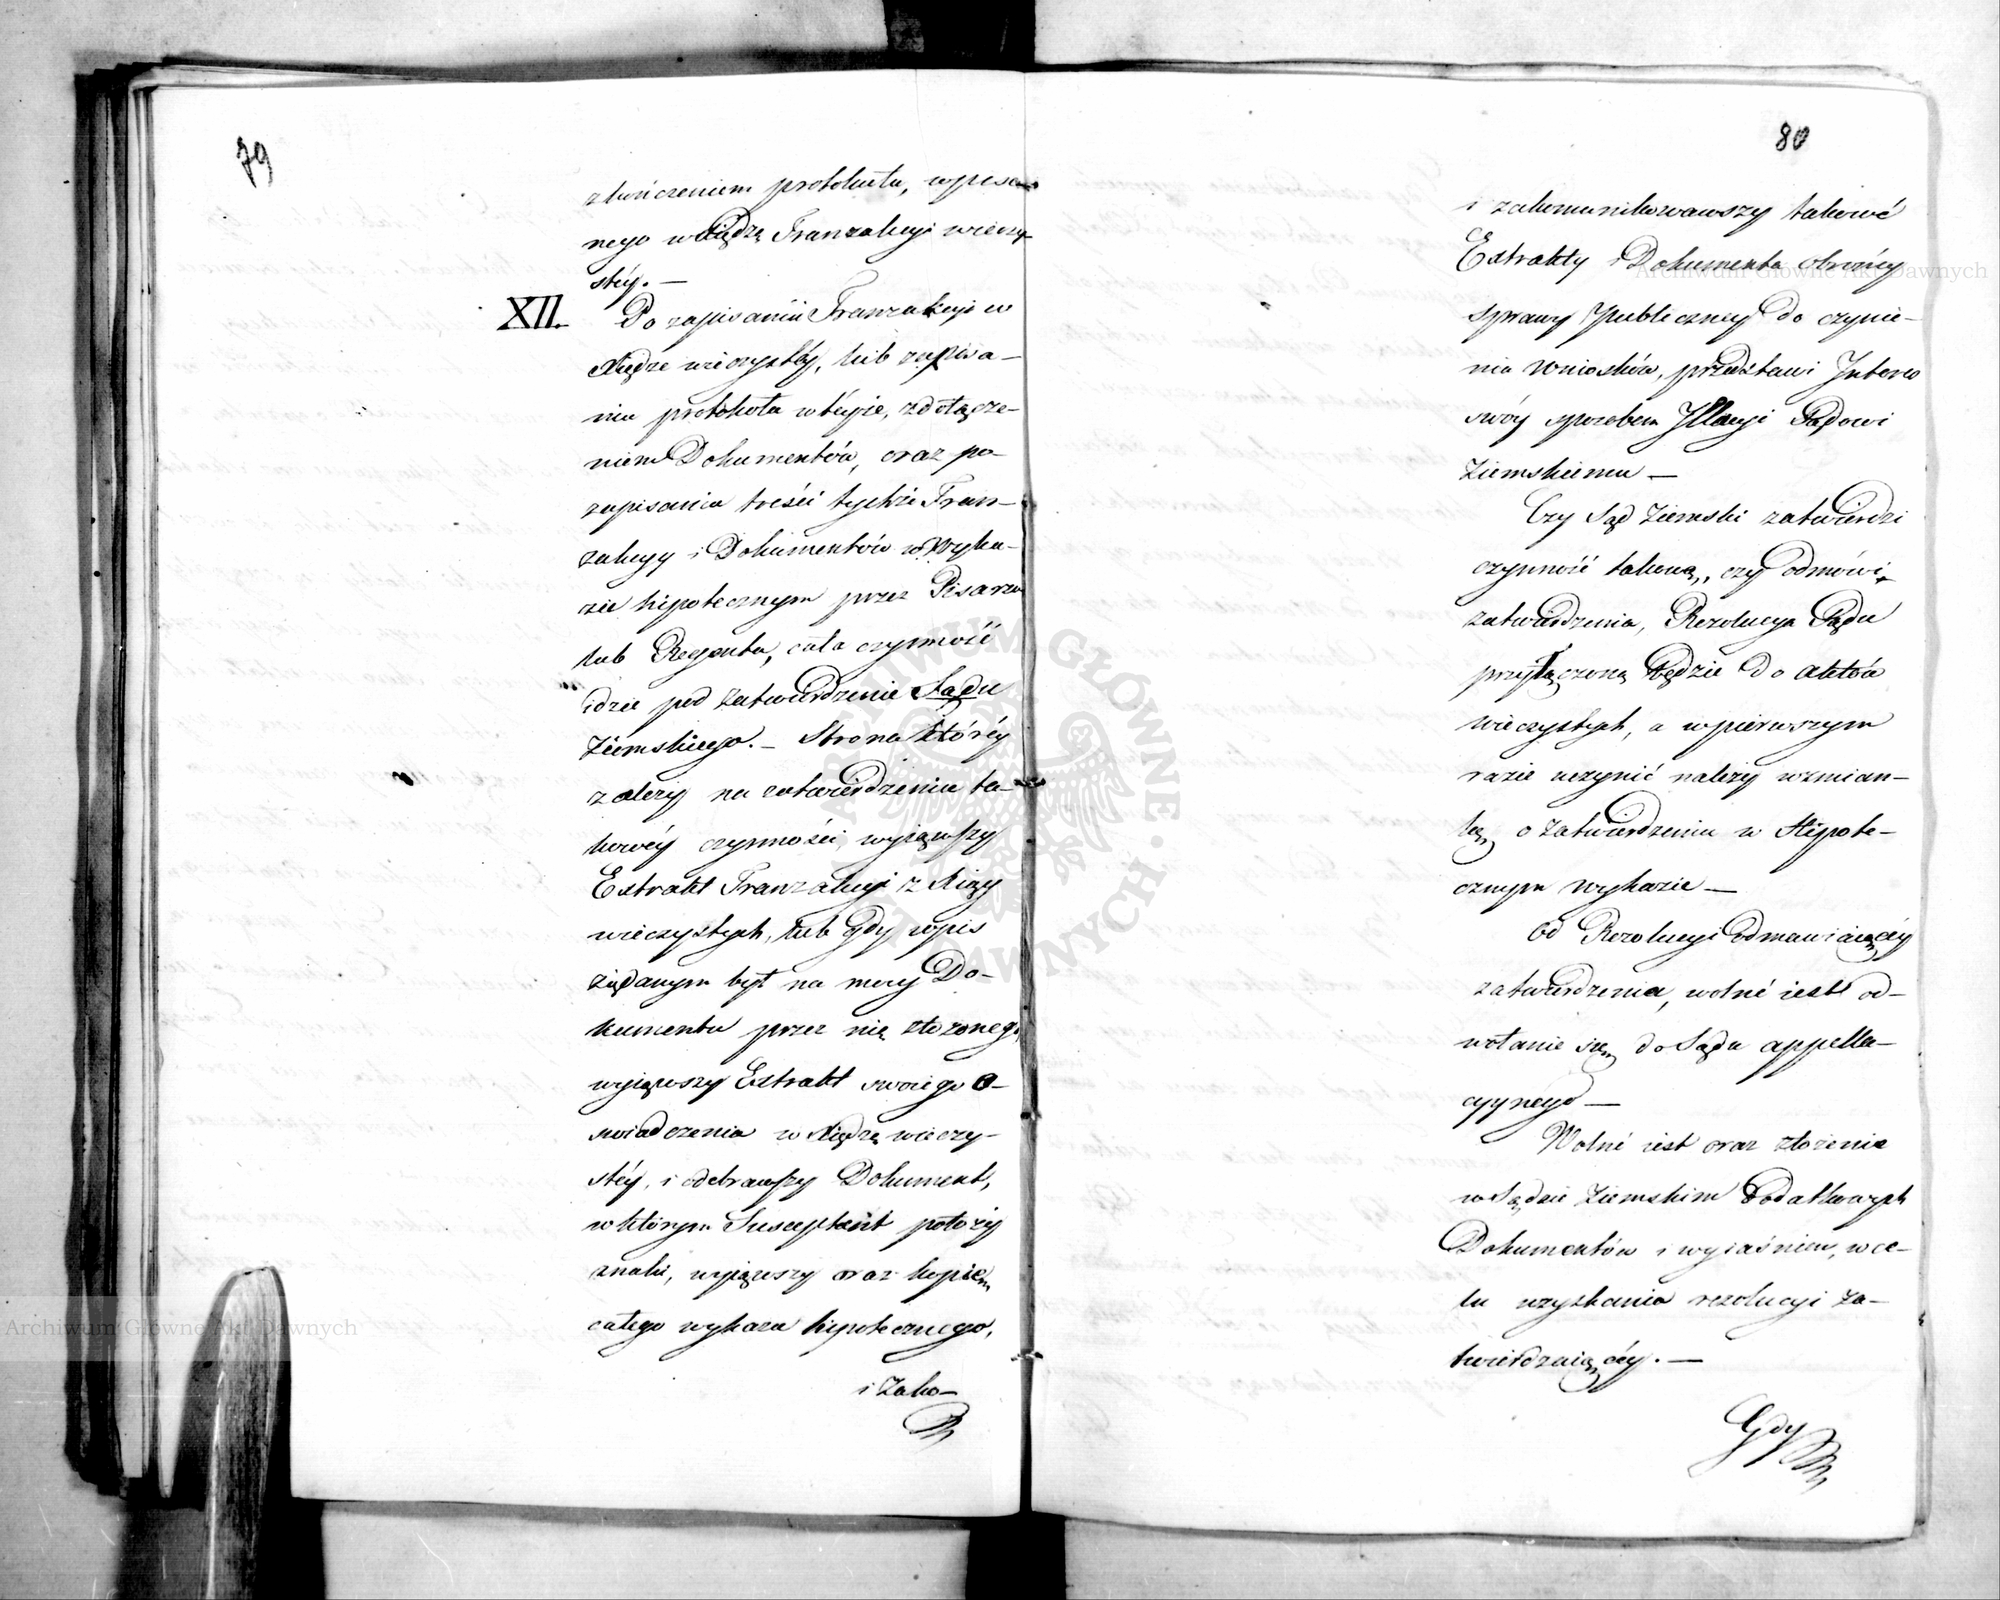 79
zkończeniem protokułu, wpisa-
nego w Xiędzę Tranzakcyi wieczy-
stéy. —
XII. Po zapisaniu Tranzakcyi w
Xiędze wieczystéy, lub zapisa-
niu protokołu w téyże, z dołącze-
niem Dokumentów, oraz po
zapisaniu treści tychże Tran-
zakcyy i Dokumentów w wyka-
zie hipotecznym przez Pisarza
lub Regenta, cała czynność
idzie pod zatwierdzenie Sądu
Ziemskiego. — Strona któréy
zależy na zatwierdzeniu ta-
kowéy czynności, wyiąwszy
Extrakt Tranzakcyi z Xiąg
wieczystych, lub gdy wpis
żądanym był na mocy Do-
kumentu przez nią złożonego,
wyiąwszy Extrakt swoiego o-
świadczenia w Xiędze wieczy-
stéy, i odebrawszy Dokument,
w którym Susceptant położy
znaki, wyiąwszy oraz kopiem
całego wykazu hipotecznego,
i zako-
80
i zakomunikowawszy takowé
Extrakty i Dokumenta obrońcy
sprawy publiczney do czynie-
nia wniosków, przedstawi Interes
swóy sposobem Illacyi Sądowi
Ziemskiemu —
Czy Sąd Ziemski zatwierdzi
czynność takową, czy odmówi
zatwierdzenia, Rezolucya Sądu
przyłączoną będzie do aktów
wieczystych, a w pierwszym
razie uczynić należy wzmian-
kę o zatwierdzeniu w Hipote-
cznym wykazie —
Od Rezolucyi odmawiaiącéy
zatwierdzenia, wolné iest od-
wołanie się do Sądu appella-
cyynego —
Wolné iest oraz złożenie
w Sądzie Ziemskim dodatkowych
Dokumentów i wyiaśnień, w ce-
lu uzyskania rezolucyi za-
twierdzaiącéy. —
Gdy
Archiwum Główne Akt Dawnych
Archiwum Główne Akt Dawnych
ARCHIWUM GŁÓWNE AKT DAWNYCH